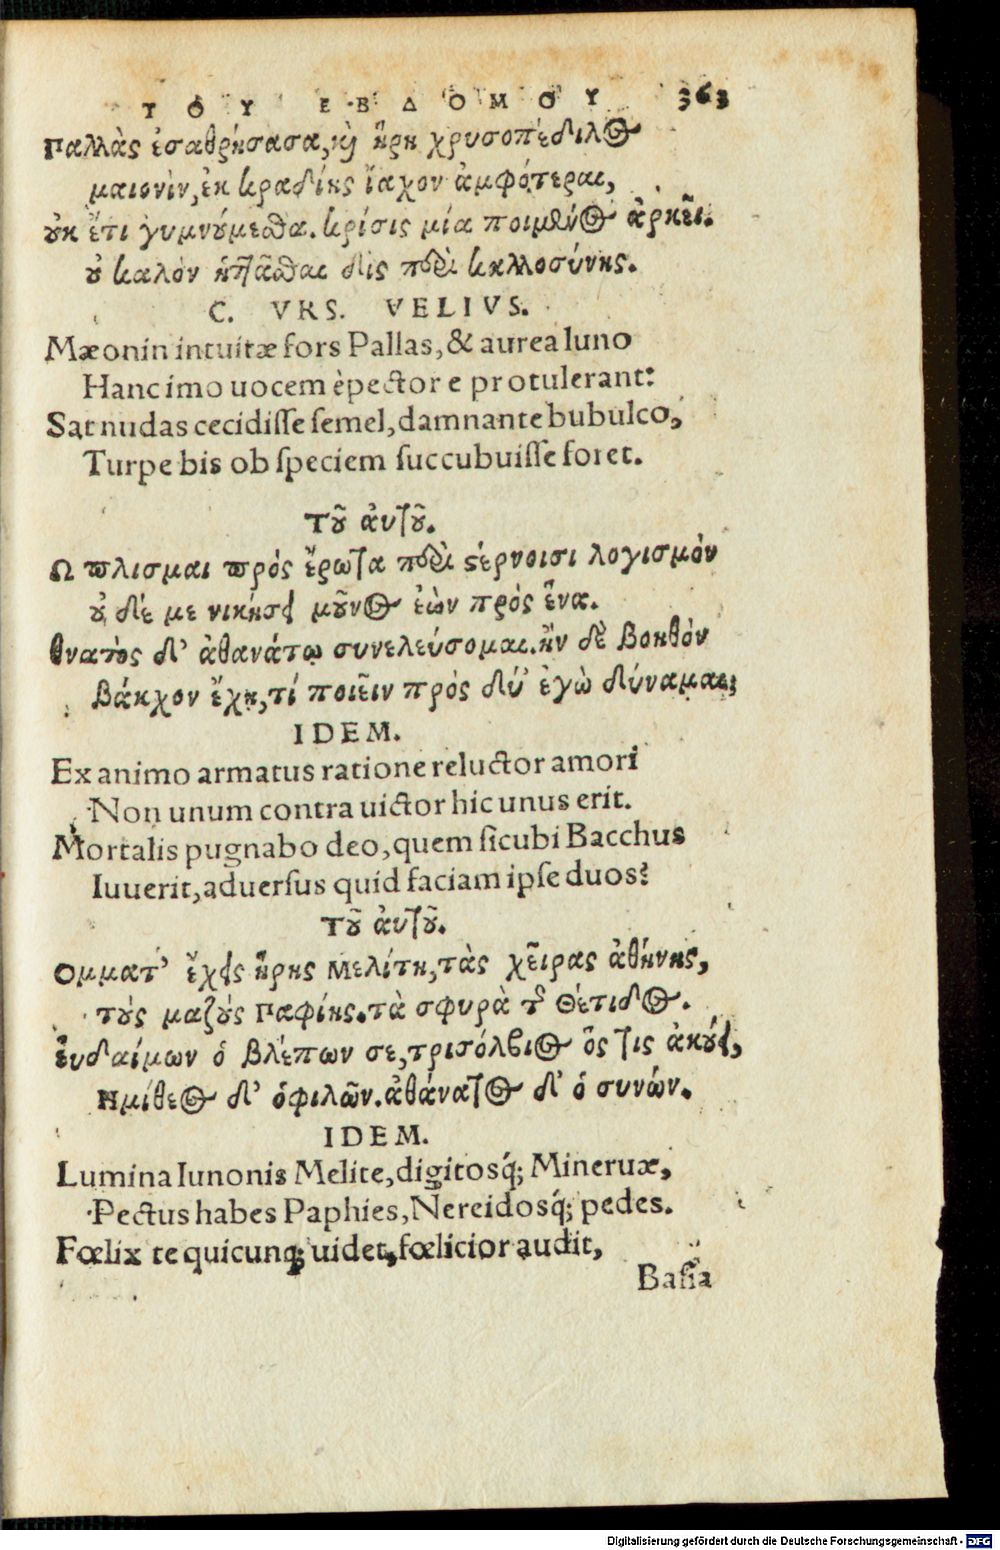 ΤΟΥ ΕΒΔΟΜΟΥ 363
Παλλὰς ἐσαθρήσασα, καὶ ἥρη χρυσοπέδιλος
μαιονὶν, ἐκ κραδίης ἴαχον ἀμφότεραι,
οὐκ ἔτι γυμνούμεσθα. κρίσις μία ποιμένος ἀρκεῖ.
οὐ καλὸν ἡττᾶσθαι δὶς περὶ καλλοσύνης.
C. VRS. VELIVS.
Mæonin intuitæ fors Pallas, & aurea Iuno
Hanc imo uocem è pectore protulerant:
Sat nudas cecidiſſe ſemel, damnante bubulco,
Turpe bis ob ſpeciem ſuccubuiſſe foret.
Τοῦ ἀυτοῦ.
Ωπλισμαι πρὸς ἔρωτα περὶ στέρνοισι λογισμὸν
οὐδέ με νικήσει μοῦνος ἐὼν πρὸς ἕνα.
θνατὸς δ' ἀθανάτῳ συνελεύσομαι. ἢν δὲ βοηθὸν
βάκχον ἔχῃ, τί ποιεῖν πρὸς δύ' ἐγὼ δύναμαι;
IDEM.
Ex animo armatus ratione reluctor amori
Non unum contra uictor hic unus erit.
Mortalis pugnabo deo, quem ſicubi Bacchus
Iuuerit, aduerſus quid faciam ipſe duos?
Τοῦ ἀυτοῦ.
Ομματ' ἔχεις ἥρης Μελίτη, τὰς χεῖρας ἀθήνης,
τοὺς μαζοὺς Παφίης. τὰ σφυρὰ τῆς Θέτιδος.
ἐυδαίμων ὁ βλέπων σε, τρισόλβιος ὅς τις ἀκούει,
Ημίθεος δ' ὁ φιλῶν. ἀθάνατος δ' ὁ συνών.
IDEM.
Lumina Iunonis Melite, digitosq́; Mineruæ,
Pectus habes Paphies, Nereidosq́; pedes.
Fœlix te quicunq; uidet, fœlicior audit,
Baſia
Digitalisierung gefördert durch die Deutsche Forschungsgemeinschaft - DFG